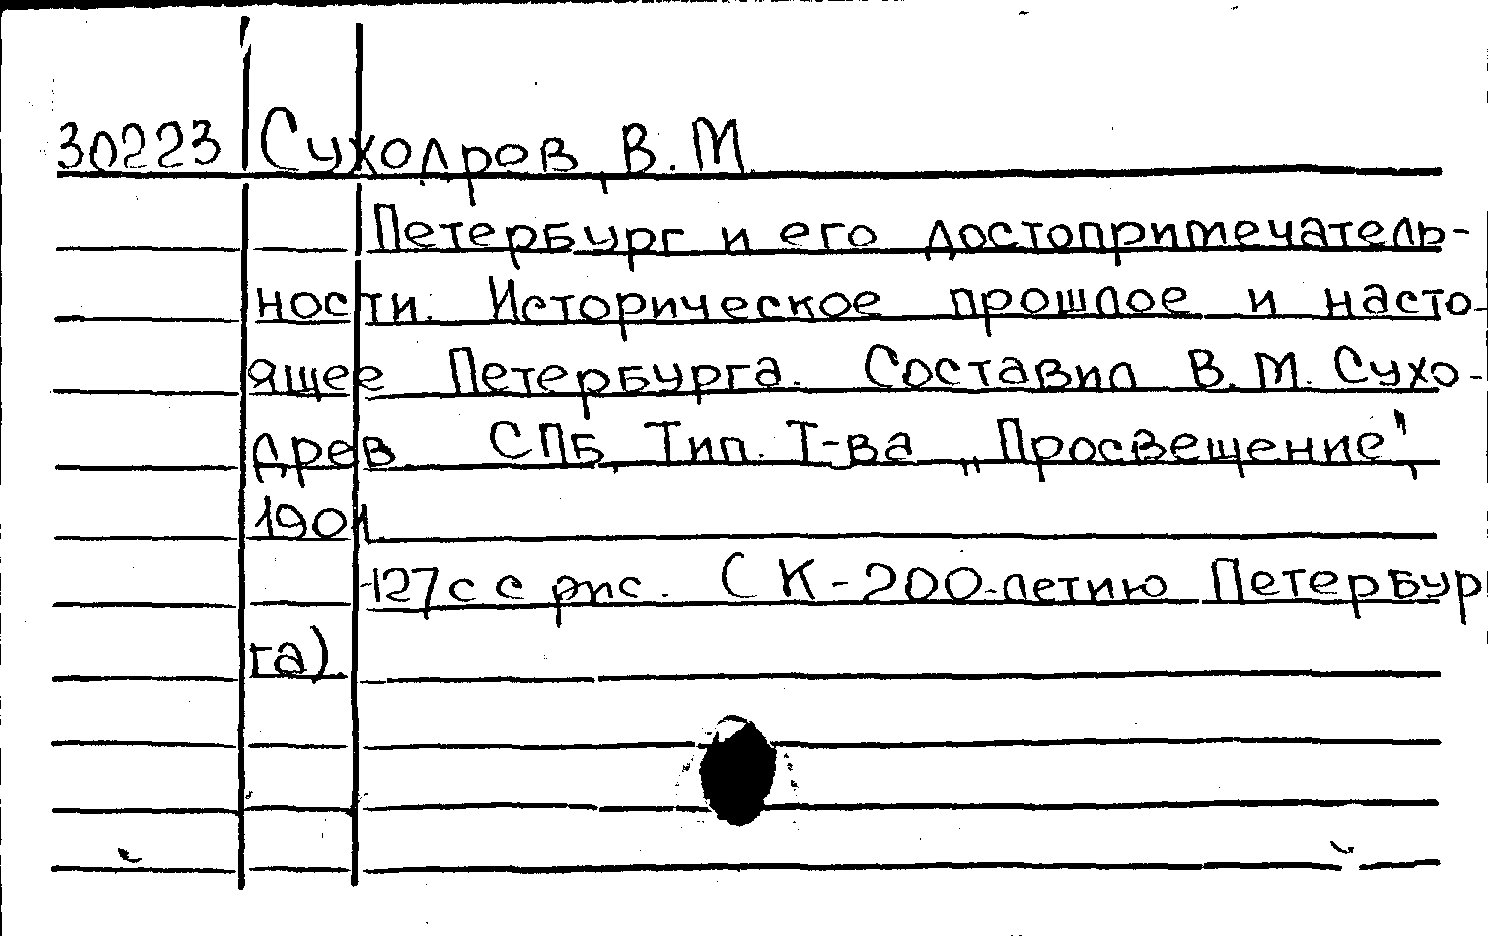 30223 Суходрев, В. М.
Петербург и его достопримечатель-
ности. Историческое прошлое и насто-
ящее Петербурга. Составил В. М. Сухо-
древ СПБ, Тип. Т-ва „Просвещение",
1901.
127с с рис. (К-200-летию Петербур
га).